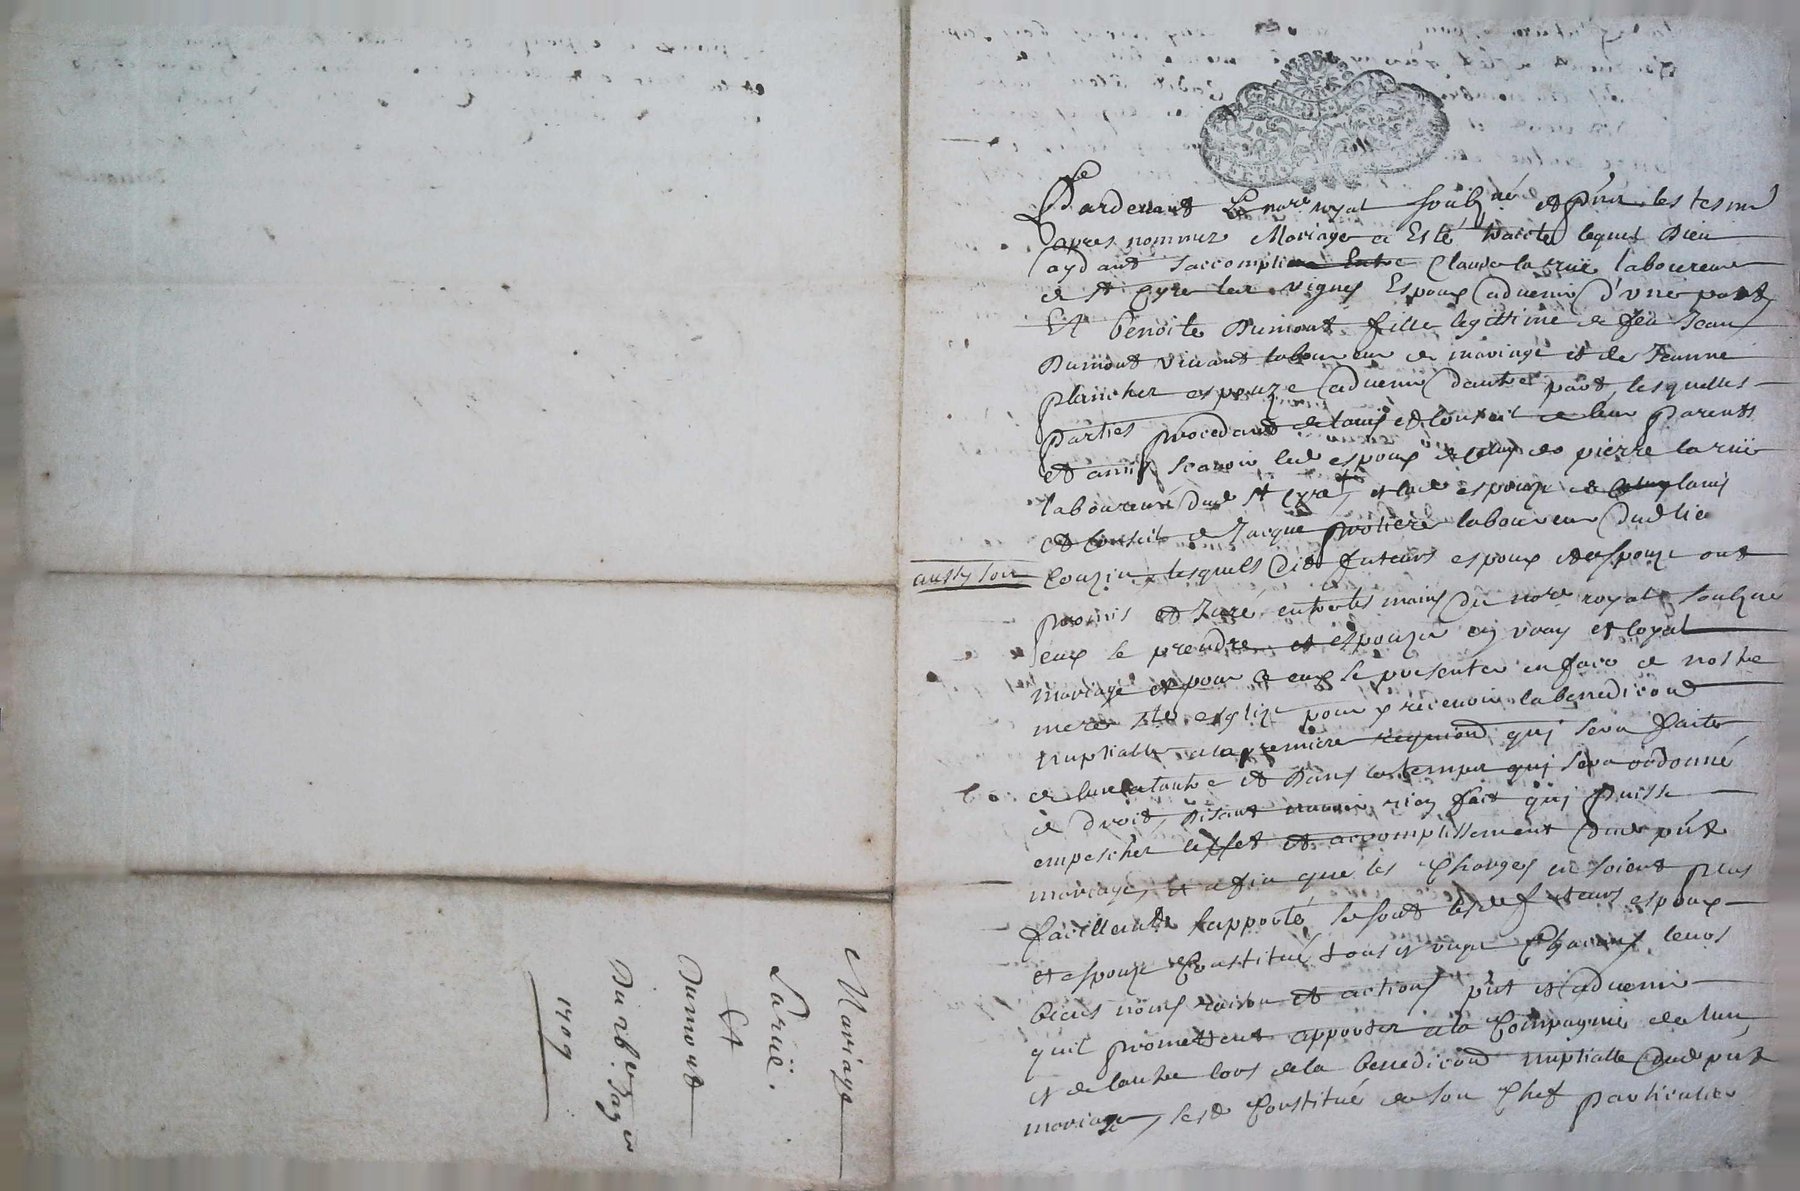 Mariage
Larüe.
Et
Dumont
Du
1709
Pardevant Le nore royal soubzné et pnts les tesm
apres nommez Mariage a Esté traicté lequel Dieu
aydant saccomplira Entre Claude la rüe laboureur
de st Cyre les vignes Espoux advenir d'une part
Et benoite Dumont fille legittime de feu Jean
Dumont vivant laboureur de mariage et de Jeanne
plancher espouze advenir dautre part, lesquelles
parties procedant de lauis et conseil de leur parents
et amis scavoir led espoux de celuy de pierre la rüe
laboureur dud st Cyre et lad espouze de lauis
et conseil de Jacque protiere laboureur dud lieu
aussy son
Couzin, lesquels dits futeurs espoux et espouze ont
promis et Juré entre les mains du nore royal soubzné
eux se prendre et espouzer en vray et loyal
mariage et pour ce eux se presenter en face de nostre
mere ste esglize pour y recevoir la benediction
nuptialle a la premiere requision quj sera faite
de lun a lautre et dans le temps quj sera ordonné
de droit, disant navoir rien fait quj puisse
empescher leffet et accomplissement dud pnt
mariage, et afin que les Charges en soient plus
facillemt suporté se sont lesd futeurs espoux
et espouze Constitué tous et ungs Chacuns leurs
biens noms raison et actions pnt et advenir
quil promettent apporter a la Compagnie de lun
et de lautre lors de la benediction nuptialle dud pnt
mariage, se sd Constitué de son Chef particulier